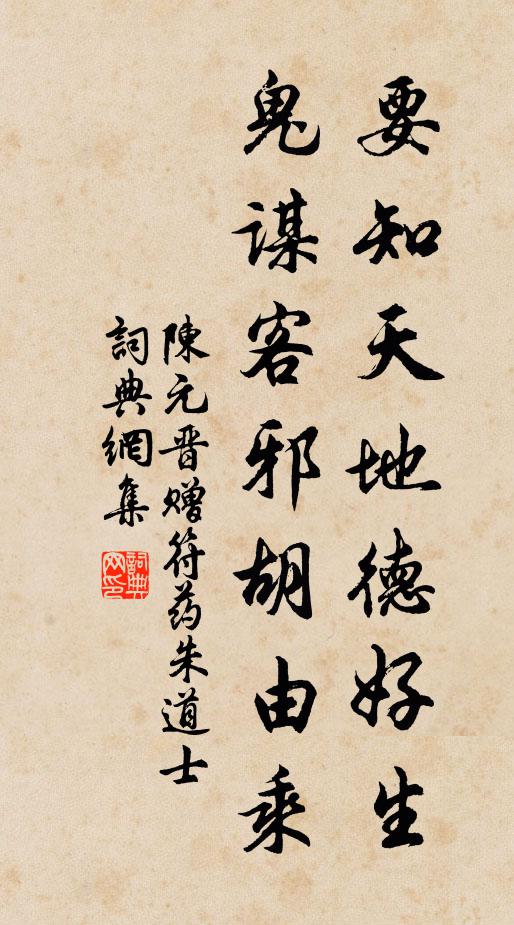 要知天地德好生
鬼谋客邪胡由乘
陳元晋赠符药朱道士
詞典網集
詞典
网印